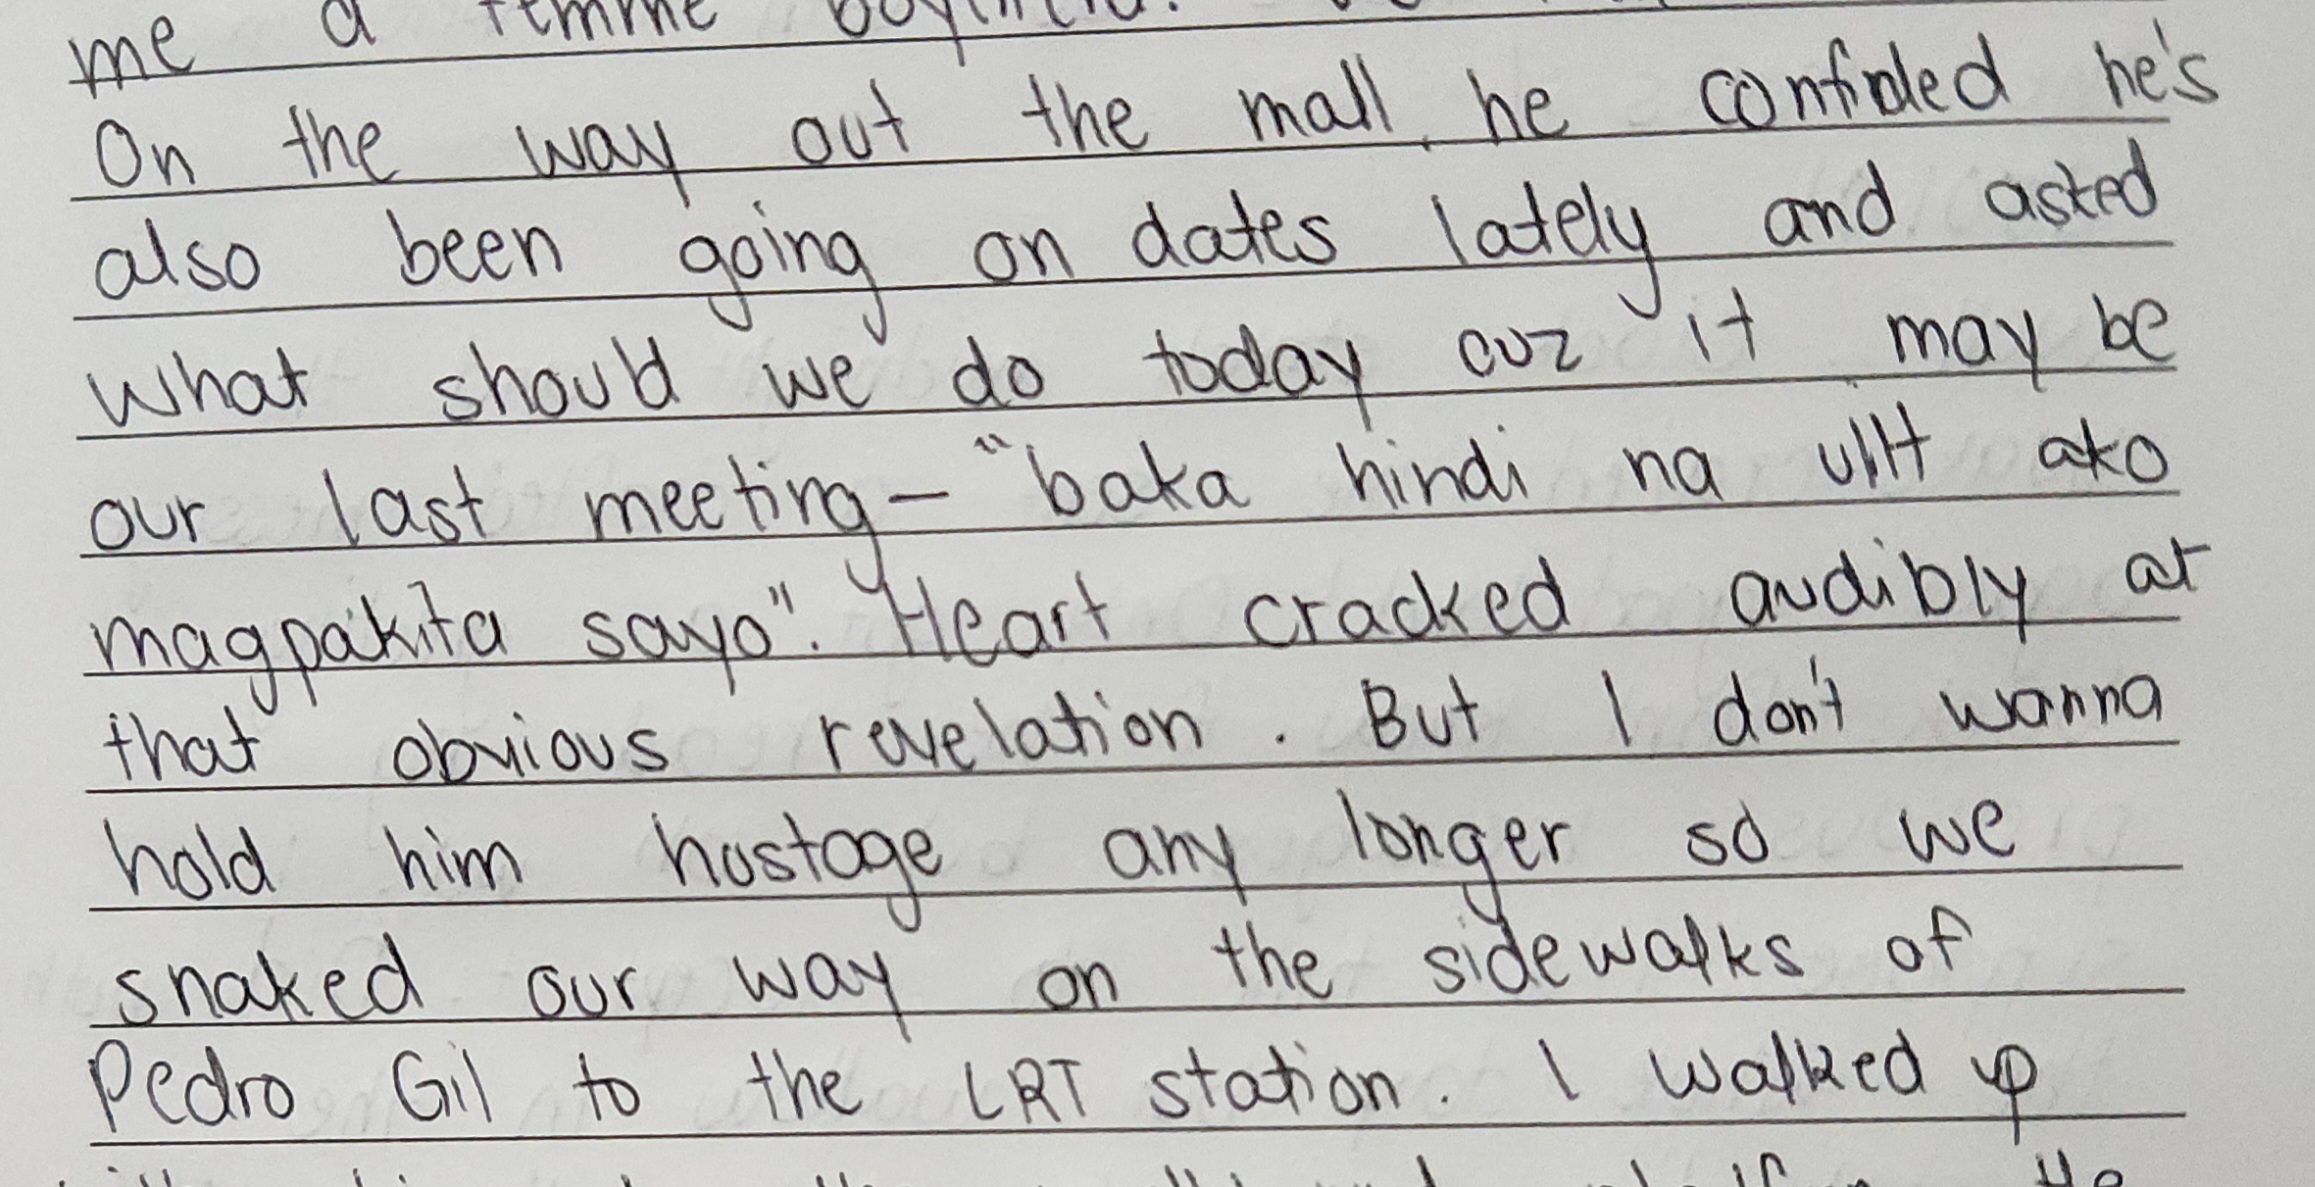 me a femme boyfriend.
On the way out the mall, he confided he's
also been going on dates lately and asked
what should we do today cuz it may be
our last meeting – "baka hindi na ulit ako
magpakita sayo". Heart cracked audibly at
that obvious revelation. But I don't wanna
hold him hostage any longer so we
snaked our way on the sidewalks of
Pedro Gil to the LRT station. I walked up